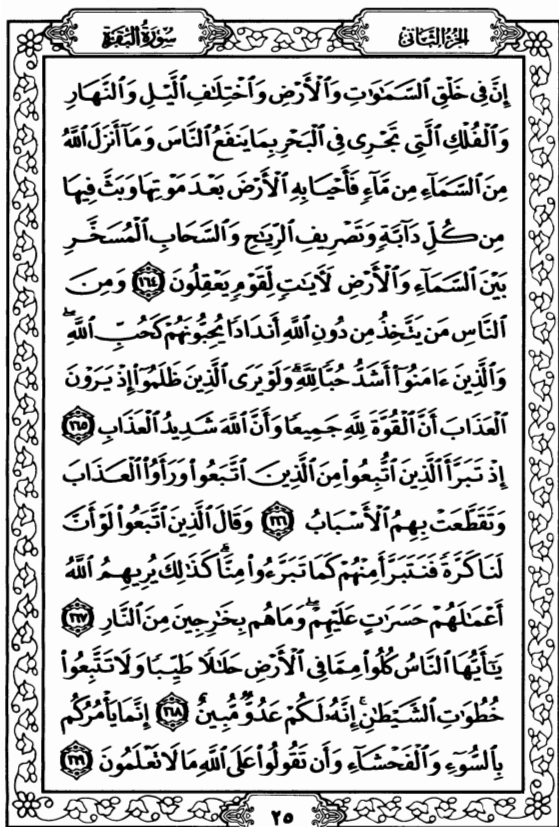 الجزء الثاني سورة البقرة
إِنَّ فِي خَلْقِ ٱلسَّمَٰوَٰتِ وَٱلْأَرْضِ وَٱخْتِلَٰفِ ٱلَّيْلِ وَٱلنَّهَارِ
وَٱلْفُلْكِ ٱلَّتِي تَجْرِي فِي ٱلْبَحْرِ بِمَا يَنفَعُ ٱلنَّاسَ وَمَآ أَنزَلَ ٱللَّهُ
مِنَ ٱلسَّمَآءِ مِن مَّآءٍ فَأَحْيَا بِهِ ٱلْأَرْضَ بَعْدَ مَوْتِهَا وَبَثَّ فِيهَا
مِن كُلِّ دَآبَّةٍ وَتَصْرِيفِ ٱلرِّيَٰحِ وَٱلسَّحَابِ ٱلْمُسَخَّرِ
بَيْنَ ٱلسَّمَآءِ وَٱلْأَرْضِ لَءَايَٰتٍ لِّقَوْمٍ يَعْقِلُونَ ١٦٤ وَمِنَ
ٱلنَّاسِ مَن يَتَّخِذُ مِن دُونِ ٱللَّهِ أَندَادًا يُحِبُّونَهُمْ كَحُبِّ ٱللَّهِۖ
وَٱلَّذِينَ ءَامَنُوٓا۟ أَشَدُّ حُبًّا لِّلَّهِۗ وَلَوْ يَرَى ٱلَّذِينَ ظَلَمُوٓا۟ إِذْ يَرَوْنَ
ٱلْعَذَابَ أَنَّ ٱلْقُوَّةَ لِلَّهِ جَمِيعًا وَأَنَّ ٱللَّهَ شَدِيدُ ٱلْعَذَابِ ١٦٥
إِذْ تَبَرَّأَ ٱلَّذِينَ ٱتُّبِعُوا۟ مِنَ ٱلَّذِينَ ٱتَّبَعُوا۟ وَرَأَوُا۟ ٱلْعَذَابَ
وَتَقَطَّعَتْ بِهِمُ ٱلْأَسْبَابُ ١٦٦ وَقَالَ ٱلَّذِينَ ٱتَّبَعُوا۟ لَوْ أَنَّ
لَنَا كَرَّةً فَنَتَبَرَّأَ مِنْهُمْ كَمَا تَبَرَّءُوا۟ مِنَّاۗ كَذَٰلِكَ يُرِيهِمُ ٱللَّهُ
أَعْمَٰلَهُمْ حَسَرَٰتٍ عَلَيْهِمْۖ وَمَا هُم بِخَٰرِجِينَ مِنَ ٱلنَّارِ ١٦٧
يَٰٓأَيُّهَا ٱلنَّاسُ كُلُوا۟ مِمَّا فِي ٱلْأَرْضِ حَلَٰلًا طَيِّبًا وَلَا تَتَّبِعُوا۟
خُطُوَٰتِ ٱلشَّيْطَٰنِۚ إِنَّهُۥ لَكُمْ عَدُوٌّ مُّبِينٌ ١٦٨ إِنَّمَا يَأْمُرُكُم
بِٱلسُّوٓءِ وَٱلْفَحْشَآءِ وَأَن تَقُولُوا۟ عَلَى ٱللَّهِ مَا لَا تَعْلَمُونَ ١٦٩
٢٥